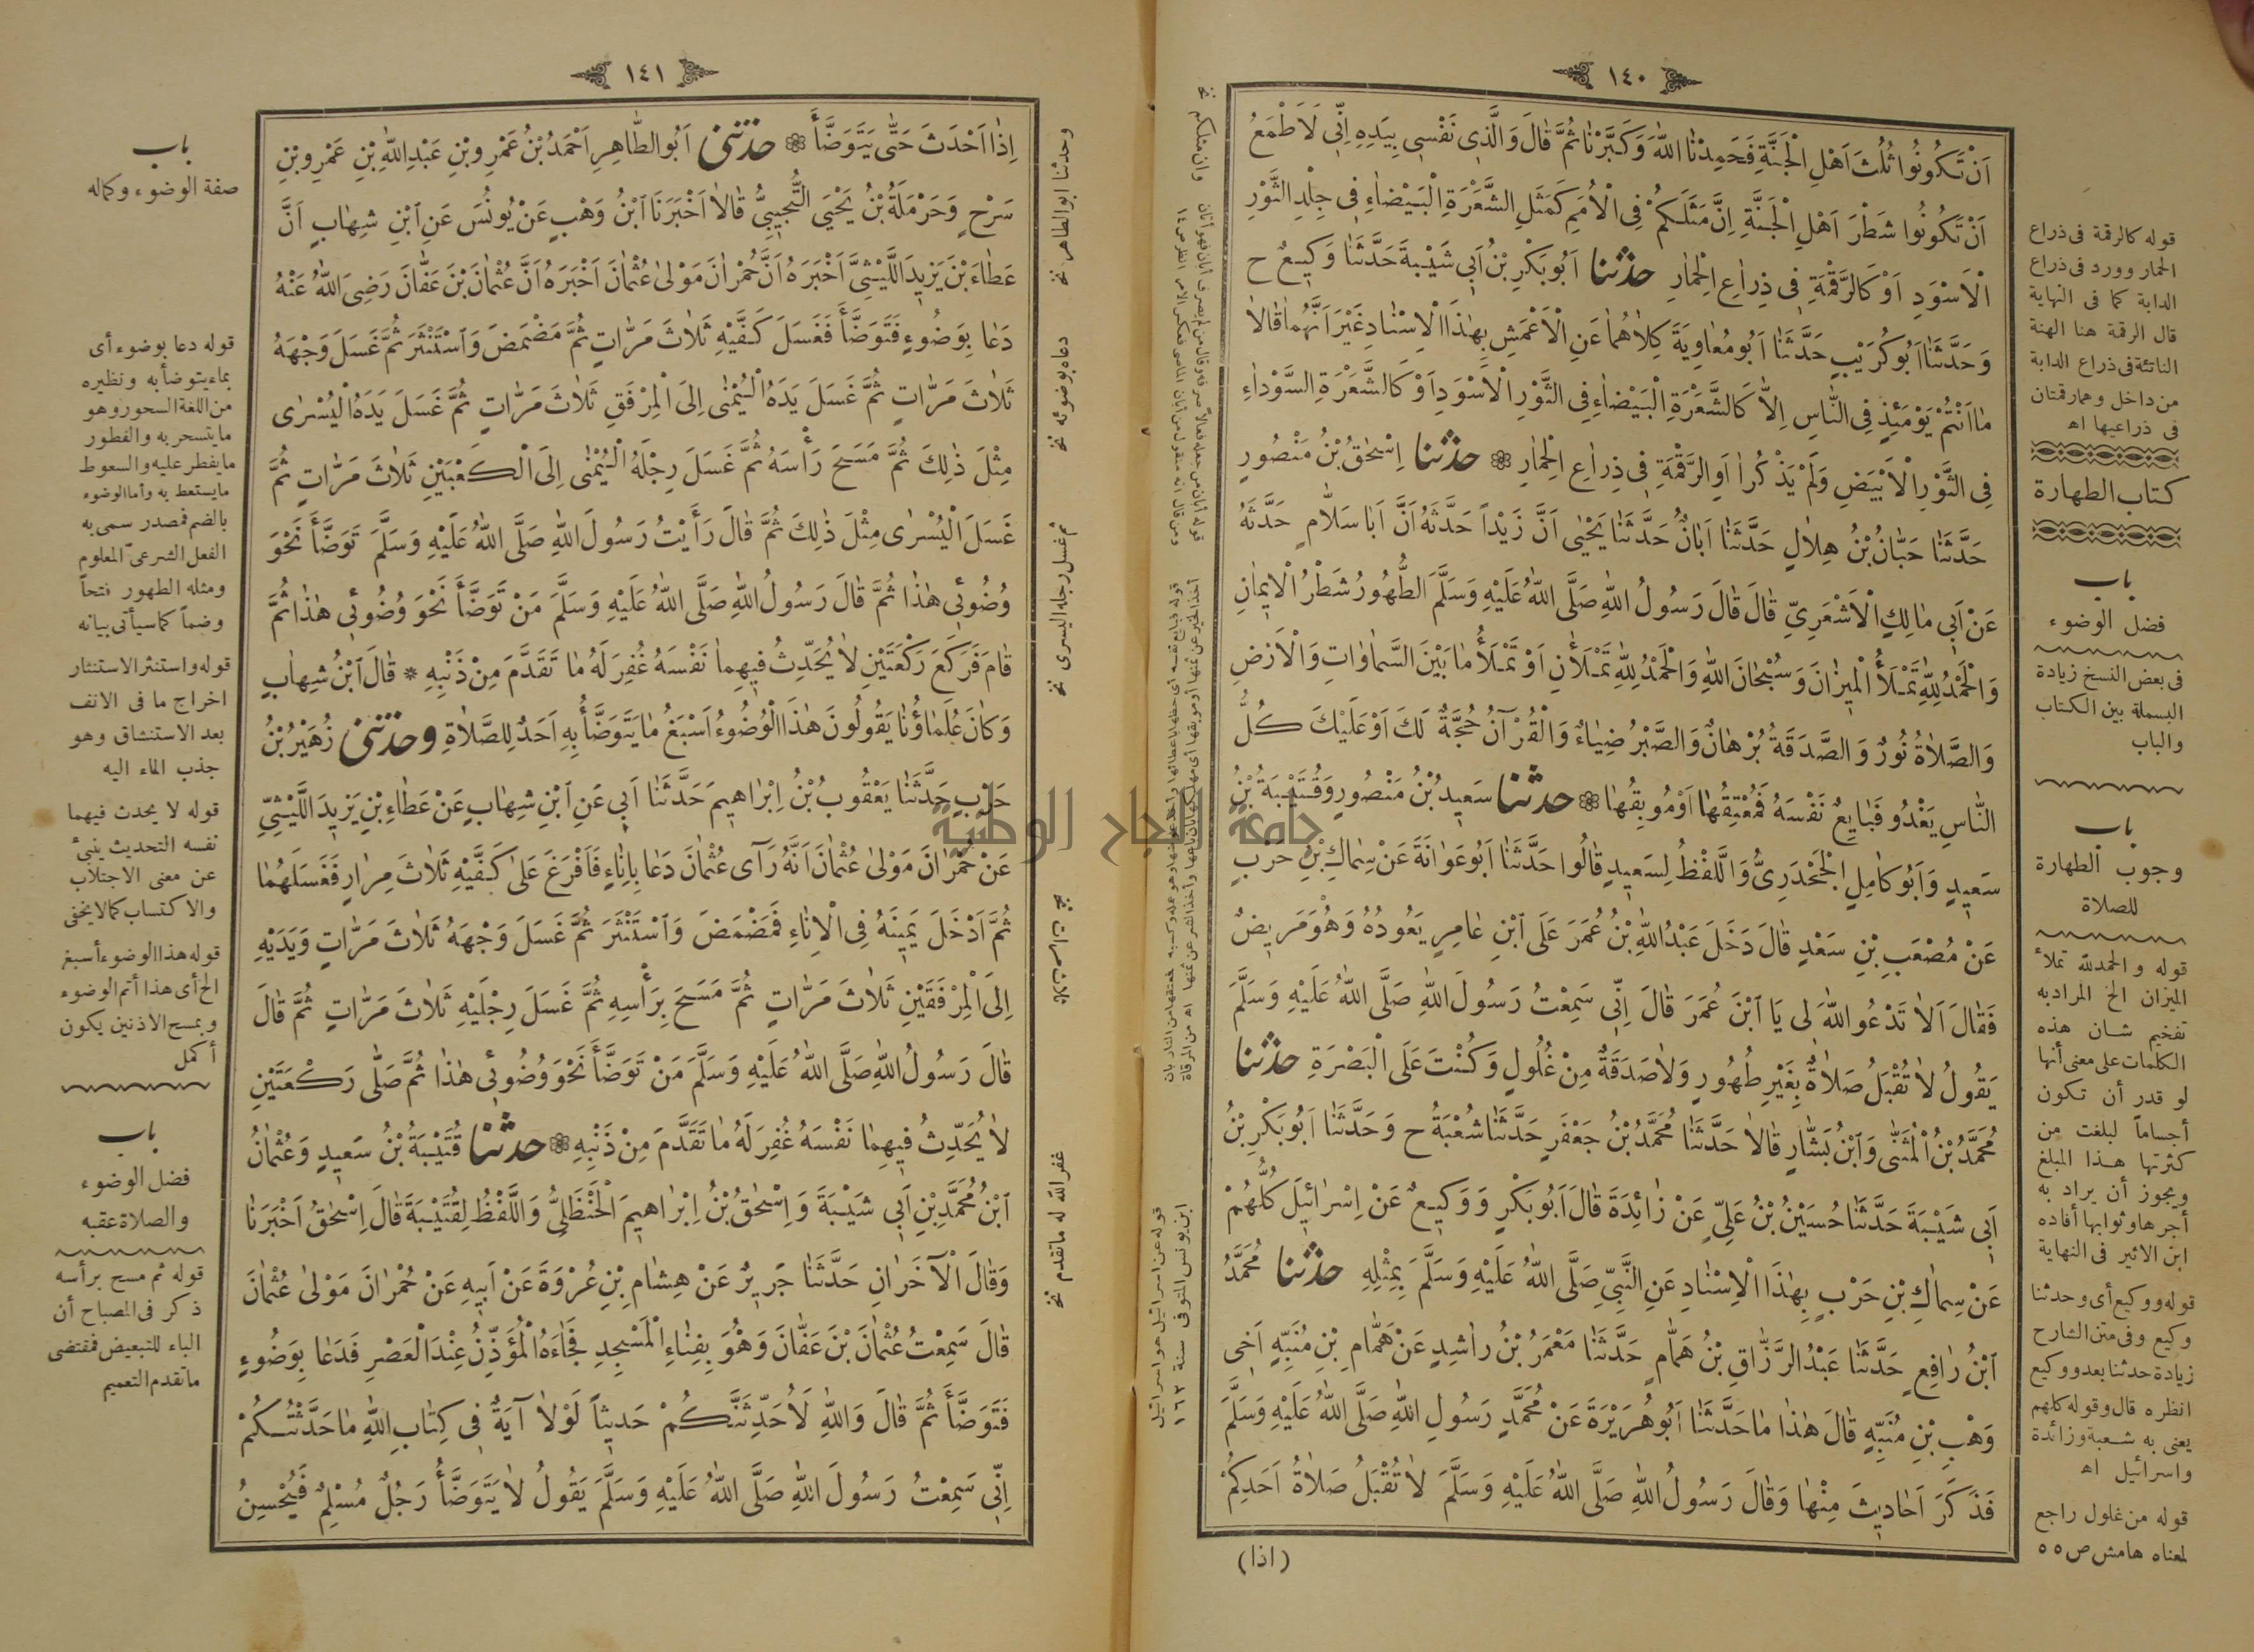 ١٤٠
اَنْ تَكُونُوا ثُلُثَ اَهْلِ الْجَنَّةِ فَحَمِدْنَا اللّٰهَ وَكَبَّرْنَا ثُمَّ قَالَ وَالَّذِى نَفْسِى بِيَدِهِ اِنِّى لَاَطْمَعُ
اَنْ تَكُونُوا شَطْرَ اَهْلِ الْجَنَّةِ اِنَّ مَثَلَكُمْ فِى الْاُمَمِ كَمَثَلِ الشَّعْرَةِ الْبَيْضَاءِ فِى جِلْدِ الثَّوْرِ
الْاَسْوَدِ اَوْ كَالرَّقْمَةِ فِى ذِرَاعِ الْحِمَارِ حَدَّثَنَا اَبُو بَكْرِ بْنُ اَبِى شَيْبَةَ حَدَّثَنَا وَكِيعٌ ح
وَحَدَّثَنَا اَبُو كُرَيْبٍ حَدَّثَنَا اَبُو مُعَاوِيَةَ كِلَاهُمَا عَنِ الْاَعْمَشِ بِهٰذَا الْاِسْنَادِ غَيْرَ اَنَّهُمَا قَالَا
مَا اَنْتُمْ يَوْمَئِذٍ فِى النَّاسِ اِلَّا كَالشَّعْرَةِ الْبَيْضَاءِ فِى الثَّوْرِ الْاَسْوَدِ اَوْ كَالشَّعْرَةِ السَّوْدَاءِ
فِى الثَّوْرِ الْاَبْيَضِ وَلَمْ يَذْكُرَا اَوِ الرَّقْمَةِ فِى ذِرَاعِ الْحِمَارِ ❁ حَدَّثَنَا اِسْحٰقُ بْنُ مَنْصُورٍ
حَدَّثَنَا حَبَّانُ بْنُ هِلَالٍ حَدَّثَنَا اَبَانٌ حَدَّثَنَا يَحْيٰى اَنَّ زَيْداً حَدَّثَهُ اَنَّ اَبَا سَلَّامٍ حَدَّثَهُ
عَنْ اَبِى مَالِكٍ الْاَشْعَرِىِّ قَالَ قَالَ رَسُولُ اللّٰهِ صَلَّى اللّٰهُ عَلَيْهِ وَسَلَّمَ الطُّهُورُ شَطْرُ الْاِيمَانِ
وَالْحَمْدُ لِلّٰهِ تَمْلَأُ الْمِيزَانَ وَسُبْحَانَ اللّٰهِ وَالْحَمْدُ لِلّٰهِ تَمْلَأٰنِ اَوْ تَمْلَأُ مَا بَيْنَ السَّمَاوَاتِ وَالْاَرْضِ
وَالصَّلَاةُ نُورٌ وَالصَّدَقَةُ بُرْهَانٌ وَالصَّبْرُ ضِيَاءٌ وَالْقُرْآنُ حُجَّةٌ لَكَ اَوْ عَلَيْكَ كُلُّ
النَّاسِ يَغْدُو فَبَايِعٌ نَفْسَهُ فَمُعْتِقُهَا اَوْ مُوبِقُهَا ❁ حَدَّثَنَا سَعِيدُ بْنُ مَنْصُورٍ وَقُتَيْبَةُ بْنُ
سَعِيدٍ وَاَبُو كَامِلٍ الْجَحْدَرِىُّ وَاللَّفْظُ لِسَعِيدٍ قَالُوا حَدَّثَنَا اَبُو عَوَانَةَ عَنْ سِمَاكِ بْنِ حَرْبٍ
عَنْ مُصْعَبِ بْنِ سَعْدٍ قَالَ دَخَلَ عَبْدُ اللّٰهِ بْنُ عُمَرَ عَلَى ابْنِ عَامِرٍ يَعُودُهُ وَهُوَ مَرِيضٌ
فَقَالَ اَلَا تَدْعُو اللّٰهَ لِى يَا ابْنَ عُمَرَ قَالَ اِنِّى سَمِعْتُ رَسُولَ اللّٰهِ صَلَّى اللّٰهُ عَلَيْهِ وَسَلَّمَ
يَقُولُ لَا تُقْبَلُ صَلَاةٌ بِغَيْرِ طُهُورٍ وَلَا صَدَقَةٌ مِنْ غُلُولٍ وَكُنْتَ عَلَى الْبَصْرَةِ حَدَّثَنَا
مُحَمَّدُ بْنُ الْمُثَنَّى وَابْنُ بَشَّارٍ قَالَا حَدَّثَنَا مُحَمَّدُ بْنُ جَعْفَرٍ حَدَّثَنَا شُعْبَةُ ح وَحَدَّثَنَا اَبُو بَكْرِ بْنُ
اَبِى شَيْبَةَ حَدَّثَنَا حُسَيْنُ بْنُ عَلِىٍّ عَنْ زَائِدَةَ قَالَ اَبُو بَكْرٍ وَوَكِيعٌ عَنْ اِسْرَائِيلَ كُلُّهُمْ
عَنْ سِمَاكِ بْنِ حَرْبٍ بِهٰذَا الْاِسْنَادِ عَنِ النَّبِىِّ صَلَّى اللّٰهُ عَلَيْهِ وَسَلَّمَ بِمِثْلِهِ حَدَّثَنَا مُحَمَّدُ
ابْنُ رَافِعٍ حَدَّثَنَا عَبْدُ الرَّزَّاقِ بْنُ هَمَّامٍ حَدَّثَنَا مَعْمَرُ بْنُ رَاشِدٍ عَنْ هَمَّامِ بْنِ مُنَبِّهٍ اَخِى
وَهْبِ بْنِ مُنَبِّهٍ قَالَ هٰذَا مَا حَدَّثَنَا اَبُو هُرَيْرَةَ عَنْ مُحَمَّدٍ رَسُولِ اللّٰهِ صَلَّى اللّٰهُ عَلَيْهِ وَسَلَّمَ
فَذَكَرَ اَحَادِيثَ مِنْهَا وَقَالَ رَسُولُ اللّٰهِ صَلَّى اللّٰهُ عَلَيْهِ وَسَلَّمَ لَا تُقْبَلُ صَلَاةُ اَحَدِكُمْ
(اذا)
قوله كالرقمة فى ذراع
الحمار وورد فى ذراع
الدابة كما فى النهاية
قال الرقمة هنا الهنة
الناتئة فى ذراع الدابة
من داخل وهما رقمتان
فى ذراعيها اه
كتاب الطهارة
باب
فضل الوضوء
فى بعض النسخ زيادة
البسملة بين الكتاب
والباب
باب
وجوب الطهارة
للصلاة
قوله والحمدلله تملأ
الميزان الخ المراد به
تفخيم شان هذه
الكلمات على معنى أنها
لو قدر أن تكون
أجساماً لبلغت من
كثرتها هذا المبلغ
ويجوز أن يراد به
أجرها وثوابها أفاده
ابن الاثير فى النهاية
قوله ووكيع أى وحدثنا
وكيع وفى متن الشارح
زيادة حدثنا بعد ووكيع
انظره قال وقوله كلهم
يعنى به شعبة وزائدة
واسرائيل اه
قوله من غلول راجع
لمعناه هامش ص ٥٥
وان مثلكم نخ
قوله عن اسرائيل هو اسرائيل
ابن يونس المتوفى سنة ١٦٢
١٤١
اِذَا اَحْدَثَ حَتّٰى يَتَوَضَّأَ ❁ حَدَّثَنِى اَبُو الطَّاهِرِ اَحْمَدُ بْنُ عَمْرِو بْنِ عَبْدِ اللّٰهِ بْنِ عَمْرِو بْنِ
سَرْحٍ وَحَرْمَلَةُ بْنُ يَحْيَى التُّجِيبِىُّ قَالَا اَخْبَرَنَا ابْنُ وَهْبٍ عَنْ يُونُسَ عَنِ ابْنِ شِهَابٍ اَنَّ
عَطَاءَ بْنَ يَزِيدَ اللَّيْثِىَّ اَخْبَرَهُ اَنَّ حُمْرَانَ مَوْلٰى عُثْمَانَ اَخْبَرَهُ اَنَّ عُثْمَانَ بْنَ عَفَّانَ رَضِىَ اللّٰهُ عَنْهُ
دَعَا بِوَضُوءٍ فَتَوَضَّأَ فَغَسَلَ كَفَّيْهِ ثَلَاثَ مَرَّاتٍ ثُمَّ مَضْمَضَ وَاسْتَنْثَرَ ثُمَّ غَسَلَ وَجْهَهُ
ثَلَاثَ مَرَّاتٍ ثُمَّ غَسَلَ يَدَهُ الْيُمْنٰى اِلَى الْمِرْفَقِ ثَلَاثَ مَرَّاتٍ ثُمَّ غَسَلَ يَدَهُ الْيُسْرٰى
مِثْلَ ذٰلِكَ ثُمَّ مَسَحَ رَأْسَهُ ثُمَّ غَسَلَ رِجْلَهُ الْيُمْنٰى اِلَى الْكَعْبَيْنِ ثَلَاثَ مَرَّاتٍ ثُمَّ
غَسَلَ الْيُسْرٰى مِثْلَ ذٰلِكَ ثُمَّ قَالَ رَأَيْتُ رَسُولَ اللّٰهِ صَلَّى اللّٰهُ عَلَيْهِ وَسَلَّمَ تَوَضَّأَ نَحْوَ
وُضُوئِى هٰذَا ثُمَّ قَالَ رَسُولُ اللّٰهِ صَلَّى اللّٰهُ عَلَيْهِ وَسَلَّمَ مَنْ تَوَضَّأَ نَحْوَ وُضُوئِى هٰذَا ثُمَّ
قَامَ فَرَكَعَ رَكْعَتَيْنِ لَا يُحَدِّثُ فِيهِمَا نَفْسَهُ غُفِرَ لَهُ مَا تَقَدَّمَ مِنْ ذَنْبِهِ * قَالَ ابْنُ شِهَابٍ
وَكَانَ عُلَمَاؤُنَا يَقُولُونَ هٰذَا الْوُضُوءُ اَسْبَغُ مَا يَتَوَضَّأُ بِهِ اَحَدٌ لِلصَّلَاةِ وَحَدَّثَنِى زُهَيْرُ بْنُ
حَرْبٍ حَدَّثَنَا يَعْقُوبُ بْنُ اِبْرَاهِيمَ حَدَّثَنَا اَبِى عَنِ ابْنِ شِهَابٍ عَنْ عَطَاءِ بْنِ يَزِيدَ اللَّيْثِىِّ
عَنْ حُمْرَانَ مَوْلٰى عُثْمَانَ اَنَّهُ رَآى عُثْمَانَ دَعَا بِاِنَاءٍ فَاَفْرَغَ عَلٰى كَفَّيْهِ ثَلَاثَ مِرَارٍ فَغَسَلَهُمَا
ثُمَّ اَدْخَلَ يَمِينَهُ فِى الْاِنَاءِ فَمَضْمَضَ وَاسْتَنْثَرَ ثُمَّ غَسَلَ وَجْهَهُ ثَلَاثَ مَرَّاتٍ وَيَدَيْهِ
اِلَى الْمِرْفَقَيْنِ ثَلَاثَ مَرَّاتٍ ثُمَّ مَسَحَ بِرَأْسِهِ ثُمَّ غَسَلَ رِجْلَيْهِ ثَلَاثَ مَرَّاتٍ ثُمَّ قَالَ
قَالَ رَسُولُ اللّٰهِ صَلَّى اللّٰهُ عَلَيْهِ وَسَلَّمَ مَنْ تَوَضَّأَ نَحْوَ وُضُوئِى هٰذَا ثُمَّ صَلَّى رَكْعَتَيْنِ
لَا يُحَدِّثُ فِيهِمَا نَفْسَهُ غُفِرَ لَهُ مَا تَقَدَّمَ مِنْ ذَنْبِهِ ❁ حَدَّثَنَا قُتَيْبَةُ بْنُ سَعِيدٍ وَعُثْمَانُ
ابْنُ مُحَمَّدِ بْنِ اَبِى شَيْبَةَ وَاِسْحٰقُ بْنُ اِبْرَاهِيمَ الْحَنْظَلِىُّ وَاللَّفْظُ لِقُتَيْبَةَ قَالَ اِسْحٰقُ اَخْبَرَنَا
وَقَالَ الْآخَرَانِ حَدَّثَنَا جَرِيرٌ عَنْ هِشَامِ بْنِ عُرْوَةَ عَنْ اَبِيهِ عَنْ حُمْرَانَ مَوْلٰى عُثْمَانَ
قَالَ سَمِعْتُ عُثْمَانَ بْنَ عَفَّانَ وَهُوَ بِفِنَاءِ الْمَسْجِدِ فَجَاءَهُ الْمُؤَذِّنُ عِنْدَ الْعَصْرِ فَدَعَا بِوَضُوءٍ
فَتَوَضَّأَ ثُمَّ قَالَ وَاللّٰهِ لَاُحَدِّثَنَّكُمْ حَدِيثاً لَوْلَا آيَةٌ فِى كِتَابِ اللّٰهِ مَا حَدَّثْتُكُمْ
اِنِّى سَمِعْتُ رَسُولَ اللّٰهِ صَلَّى اللّٰهُ عَلَيْهِ وَسَلَّمَ يَقُولُ لَا يَتَوَضَّأُ رَجُلٌ مُسْلِمٌ فَيُحْسِنُ
وحدثنا ابو الطاهر نخ
دعاه بوضوئه نخ
ثم غسل رجله اليسرى نخ
ثلاث مرات نخ
غفر الله له ما تقدم نخ
باب
صفة الوضوء وكماله
قوله دعا بوضوء أى
بماء يتوضأ به ونظيره
من اللغة السحور وهو
ما يتسحر به والفطور
ما يفطر عليه والسعوط
ما يستعط به وأما الوضوء
بالضم فمصدر سمى به
الفعل الشرعىّ المعلوم
ومثله الطهور فتحاً
وضماً كما سيأتى بيانه
قوله واستنثر الاستنثار
اخراج ما فى الانف
بعد الاستنشاق وهو
جذب الماء اليه
قوله لا يحدث فيهما
نفسه التحديث ينبئ
عن معنى الاجتلاب
والاكتساب كما لا يخفى
قوله هذا الوضوء أسبغ
الخ أى هذا أتم الوضوء
وبمسح الاذنين يكون
أكمل
باب
فضل الوضوء
والصلاة عقبه
قوله ثم مسح برأسه
ذكر فى المصباح أن
الباء للتبعيض فمقتضى
ما تقدم التعميم
جامعة النجاح الوطنية